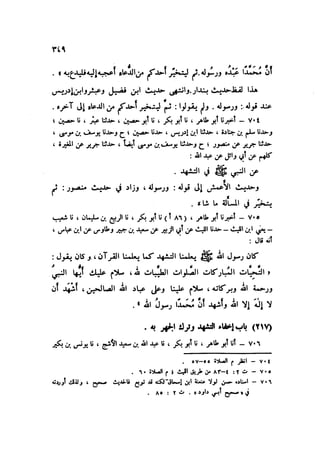 ٣٤٩
أَنَّ مُحَمَّدًا عَبْدُهُ ورسُولُه. ثم ليتخيَّر أحدُكم من الدعاء أعجبه إليه فليدع به » .
هذا لفظ حديث بندار. وانتهى حديث ابن فضيل وعبثر وابن إدريس
عند قوله : ورسوله . ولم يقولوا : ثم ليتخير أحدكم من الدعاء إلى آخره .
٧٠٤ - أخبرنا أبو طاهر ، نا أبو بكر ، نا أبو حصين ، حدثنا عبثر ، نا حصين ؛
وحدثنا سلم بن جنادة ، حدثنا ابن إدريس ، حدثنا حصين ح وحدثنا يوسف بن موسى ،
حدثنا جرير عن منصور ح وحدثنا يوسف بن موسى أيضًا ، حدثنا جرير عن المغيرة ،
كلهم عن أبي وائل عن عبد الله :
عن النبي ﷺ في التشهد .
وحديث الأعمش إلى قوله : ورسوله ، وزاد في حديث منصور : ثم
يتخيَّر في المسألة ما شاء .
٧٠٥ - أخبرنا أبو طاهر ، نا أبو بكر (٨٦ أ) ، نا الربيع بن سليمان ، نا شعيب
- يعني ابن الليث - حدثنا الليث عن أبي الزبير عن سعيد بن جبير وطاوس عن ابن عباس ،
أنه قال :
كان رسول الله ﷺ يعلمنا التشهد كما يعلمنا القرآن ، وكان يقول :
« التحيَّات المُبَاركات الصلوات الطيِّبات لله ، سلام عليك أيُّها النبيُّ
ورحمة الله وبركاته ، سلام علينا وعلى عباد الله الصالحين، أَشْهَدُ أن
لا إلَهَ إلا الله وأشهد أنَّ مُحَمَّدًا رسول الله » .
(٢١٧) باب إخفاء التشهد وترك الجهر به .
٧٠٦ - أنا أبو طاهر ، نا أبو بكر ، نا عبد الله بن سعيد الأشج ، نا يونس بن بكير
٧٠٤ - انظر م الصلاة ٥٥-٥٧ .
٧٠٥ - ن ٢ : ٨٣-٤ من طريق الليث ؛ م الصلاة ٦٠ .
٧٠٦ - إسناده حسن لولا عنعنة ابن إسحاق لكنه قد توبع فالحديث صحيح ، ولذلك أوردته
في « صحيح أبي داود » . ت ٢ : ٨٥ .